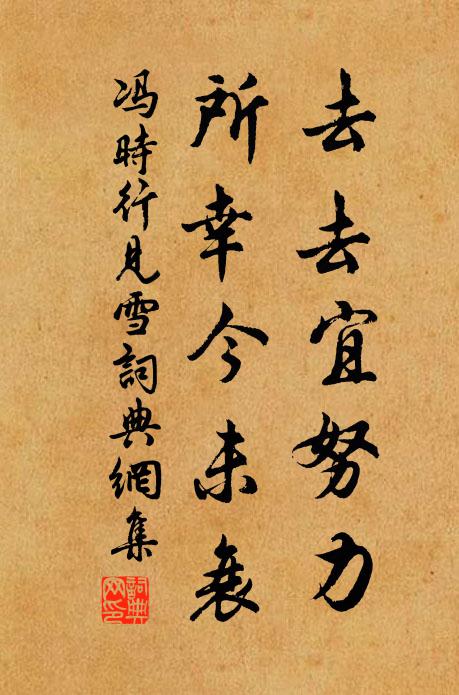 去去宜努力
所幸今未衰
冯時行見雪詞典網集
詞典
网印